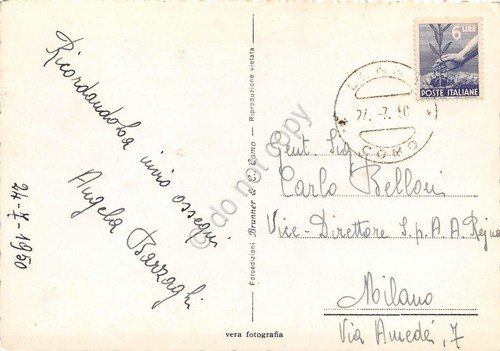 Ricordandola invio ossequi
Angela Barzaghi
24-7-1950
Fotoedizioni Brunner & C. Como - Riproduzione vietata
vera fotografia
6 LIRE
POSTE ITALIANE
LENNO
COMO
Gent. Sig.
Carlo Belloni
Vice-Direttore S.p.A. A. Rejna
Milano
Via Amedei, 7
do not copy